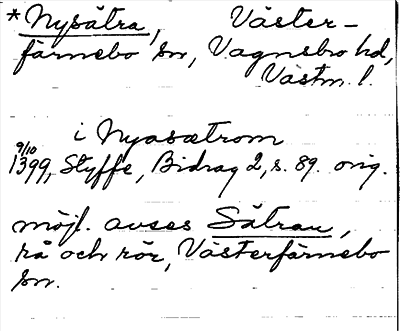 *Nysätra, Väster-
färnebo sn, Vagnsbro hd,
Västm. l.
i Nyasætrom
9/10
1399, Styffe, Bidrag 2, s. 89. orig.
möjl. avses Sätran,
rå och rör, Västerfärnebo
sn.